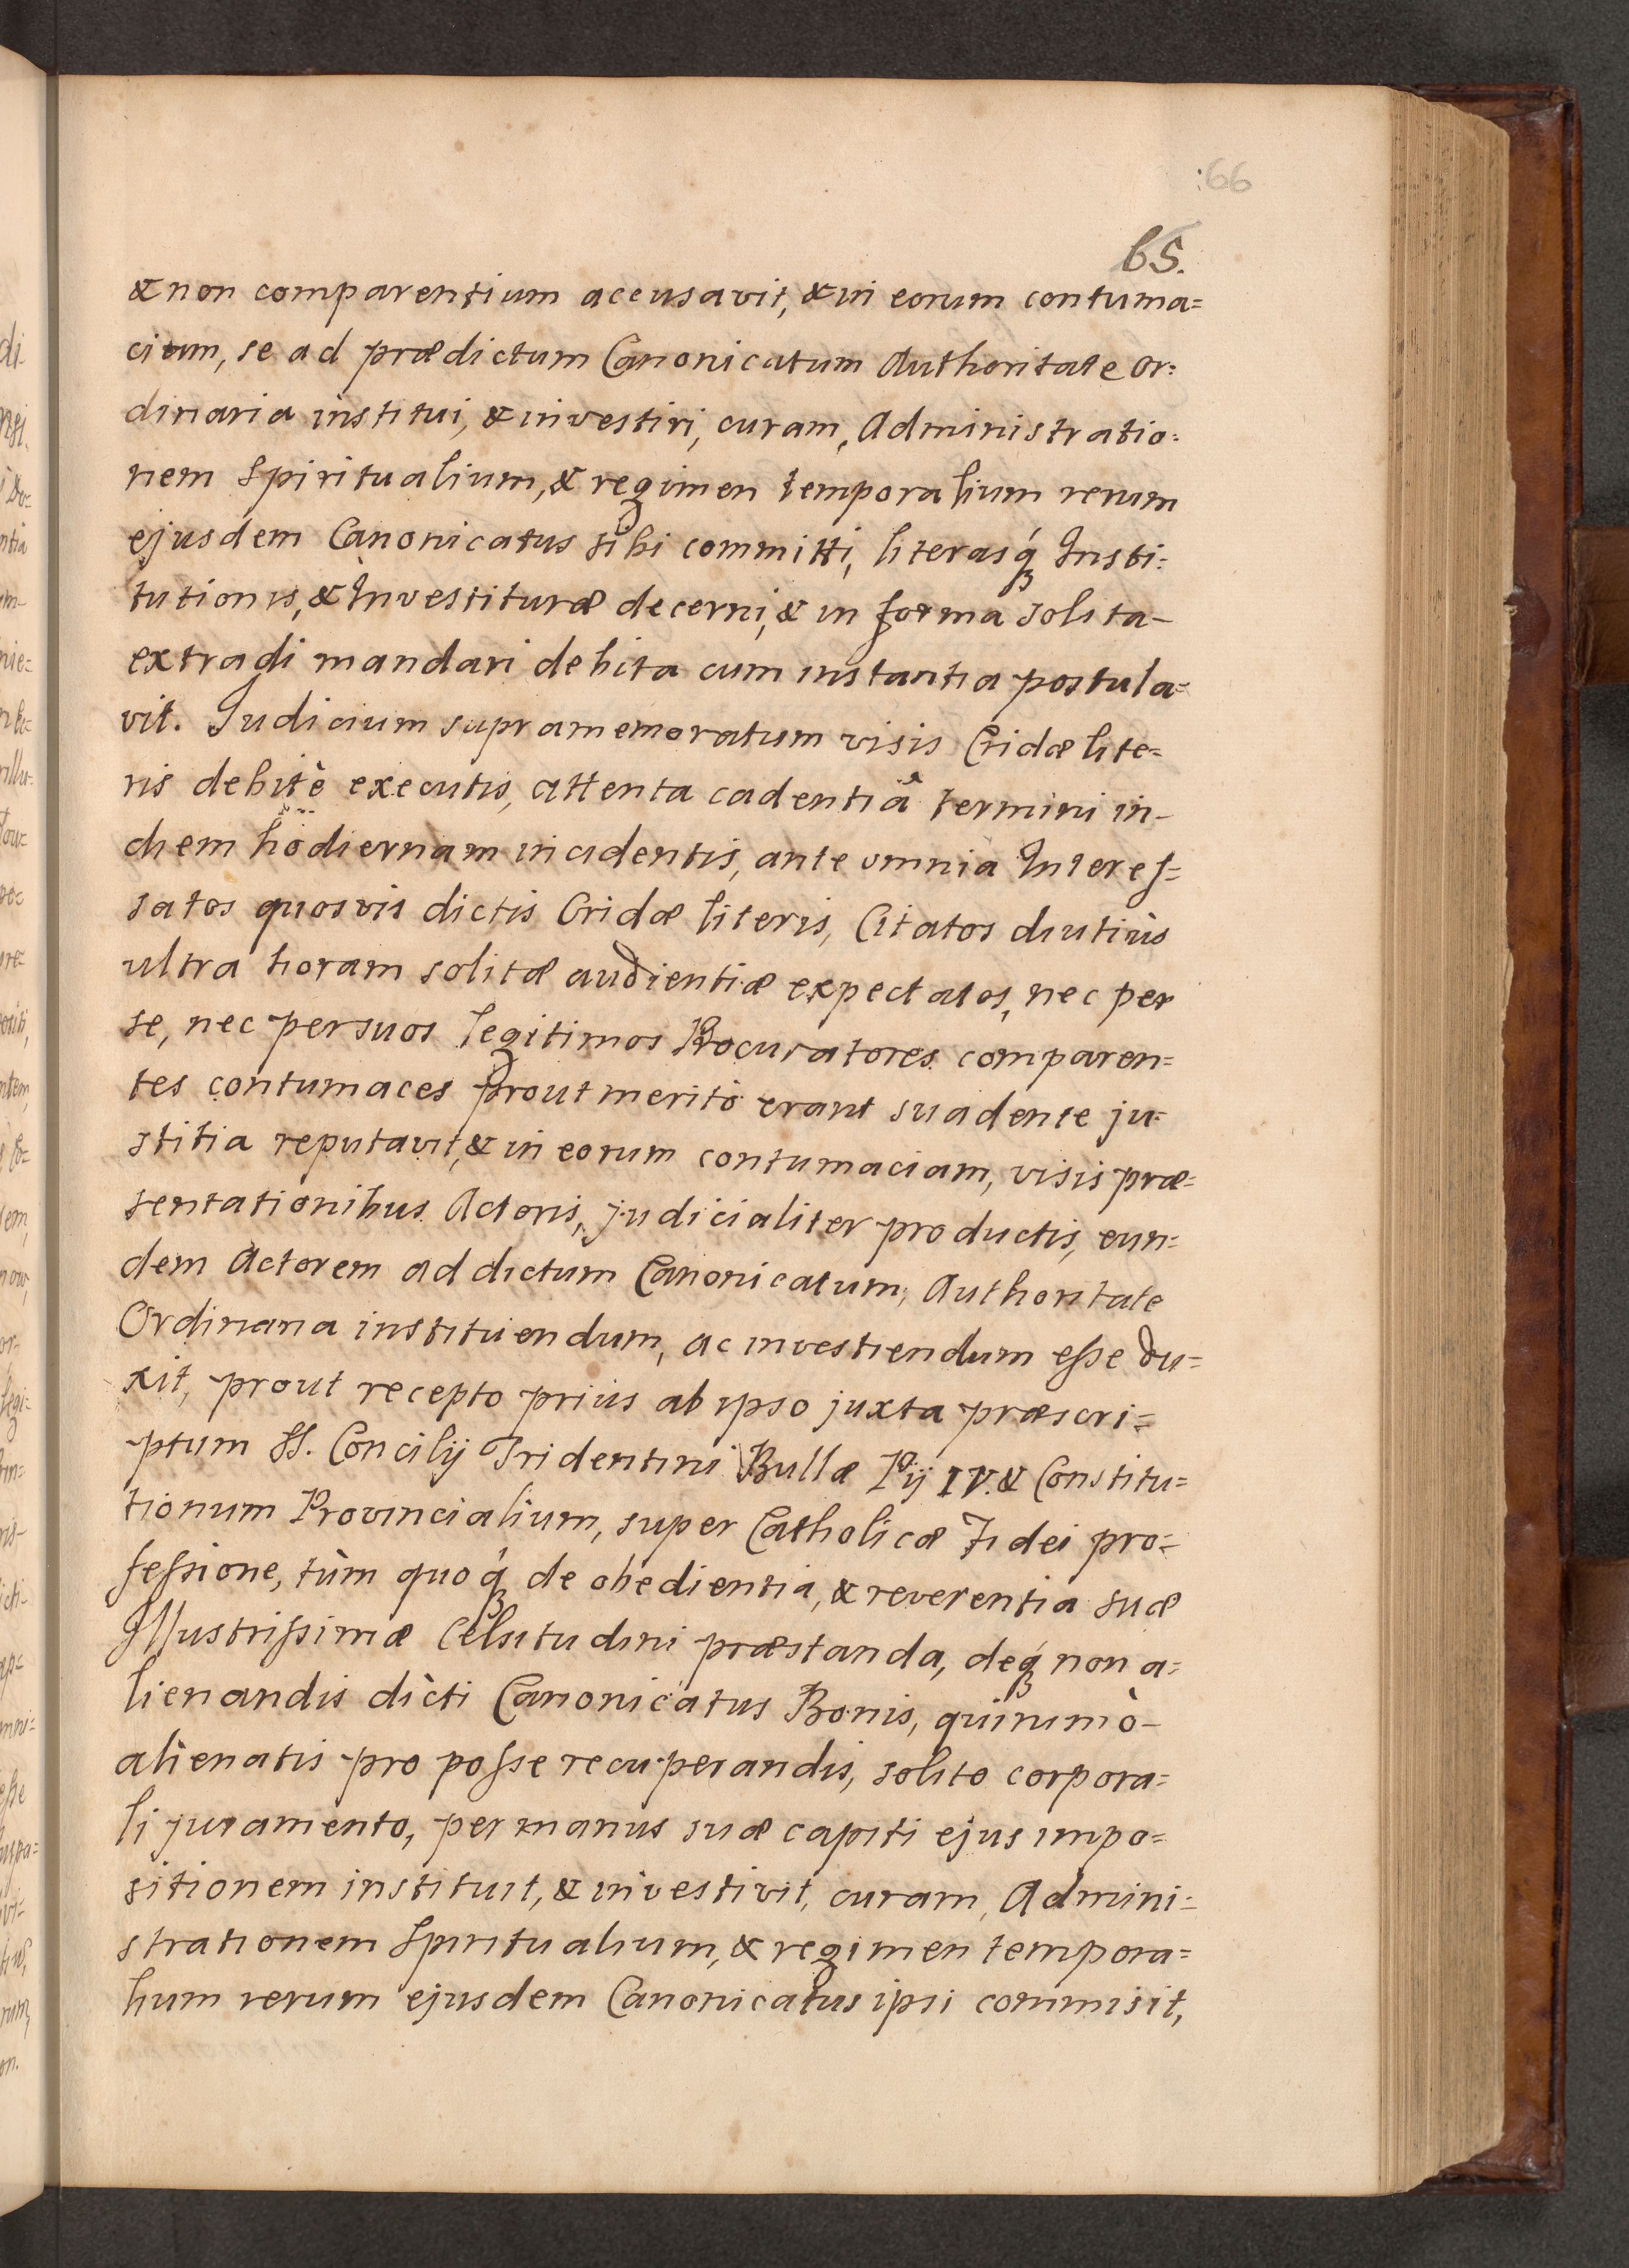 :66
65.
& non comparentium accusavit, & in eorum contuma=
ciam, se ad prædictum Canonicatum Authoritate Or=
dinaria institui, & investiri, curam, Administratio=
nem Spiritualium, & regimen temporalium rerum
ejusdem Canonicatus sibi committi, literasq́ Insti=
tutionis, & Investituræ decerni, & in forma solita-
extradi mandari debita cum instantia postula=
vit. Judicium supramemoratum visis Cridæ lite=
ris debitè executis, attenta cadentiâ termini in-
diem hodiernam incidentis, ante omnia Interes=
satos quosvis dictis Cridæ literis, Citatos diutiùs
ultra horam solitæ audientiæ expectatos, nec per
se, nec per suos legitimos Procuratores comparen=
tes contumaces prout meritò erant suadente ju=
stitia reputavit, & in eorum contumaciam, visis præ=
sentationibus Actoris, judicialiter productis, eun=
dem Actorem ad dictum Canonicatum, Authoritate
Ordinaria instituendum, ac investiendum esse du=
xit, prout recepto priùs ab ipso juxta præscri=
ptum SS. Concilij Tridentini Bullæ Pij IV. & Constitu=
tionum Provincialium, super Catholicæ Fidei pro=
fessione, tùm quoq́ de obedientia, & reverentia suæ
Illustrissimæ Celsitudini præstanda, deq́ non a=
lienandis dicti Canonicatus Bonis, quinimò-
alienatis pro posse recuperandis, solito corpora=
li juramento, per manus suæ capiti ejus impo=
sitionem instituit, & investivit, curam, Admini=
strationem Spiritualium, & regimen tempora=
lium rerum ejusdem Canonicatus ipsi commisit,